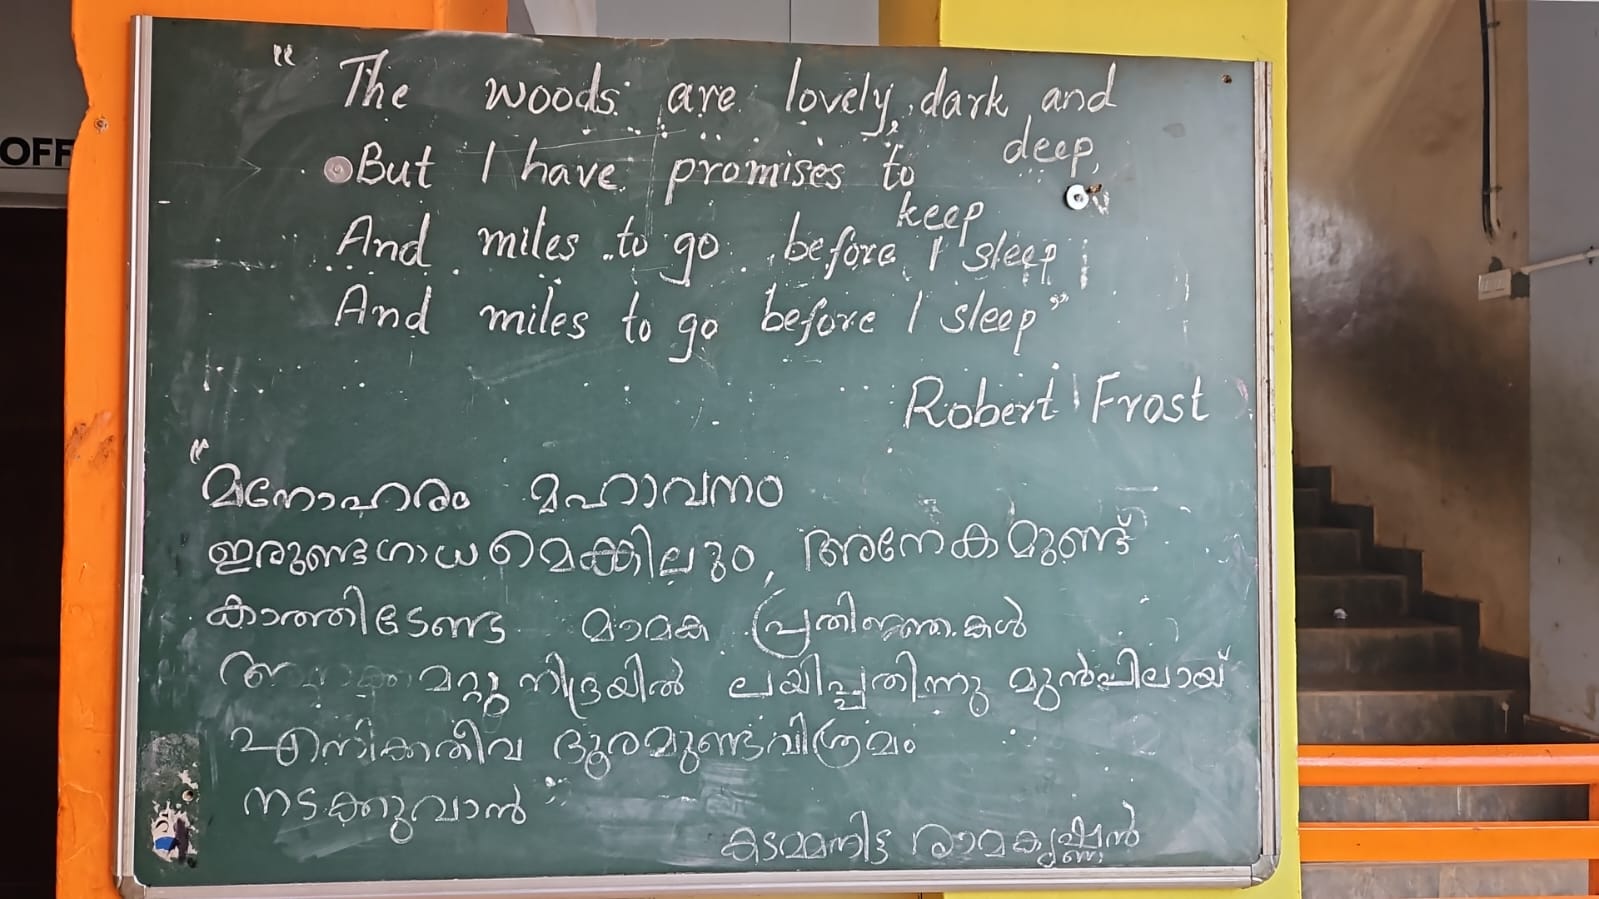 OFF
“ The woods are lovely, dark and deep,
But I have promises to keep
And miles to go before I sleep
And miles to go before I sleep”
Robert Frost
“മനോഹരം മഹാവനം
ഇരുണ്ടഗാധമെങ്കിലും, അനേകമുണ്ട്
കാത്തിടേണ്ട മാമക പ്രതിജ്ഞകൾ
മറ്റു നിദ്രയിൽ ലയിപ്പതിന്നു മുൻപിലായ്
എനിക്കതീവ ദൂരമുണ്ടവിശ്രമം
നടക്കുവാൻ”
കടമ്മനിട്ട രാമകൃഷ്ണൻ